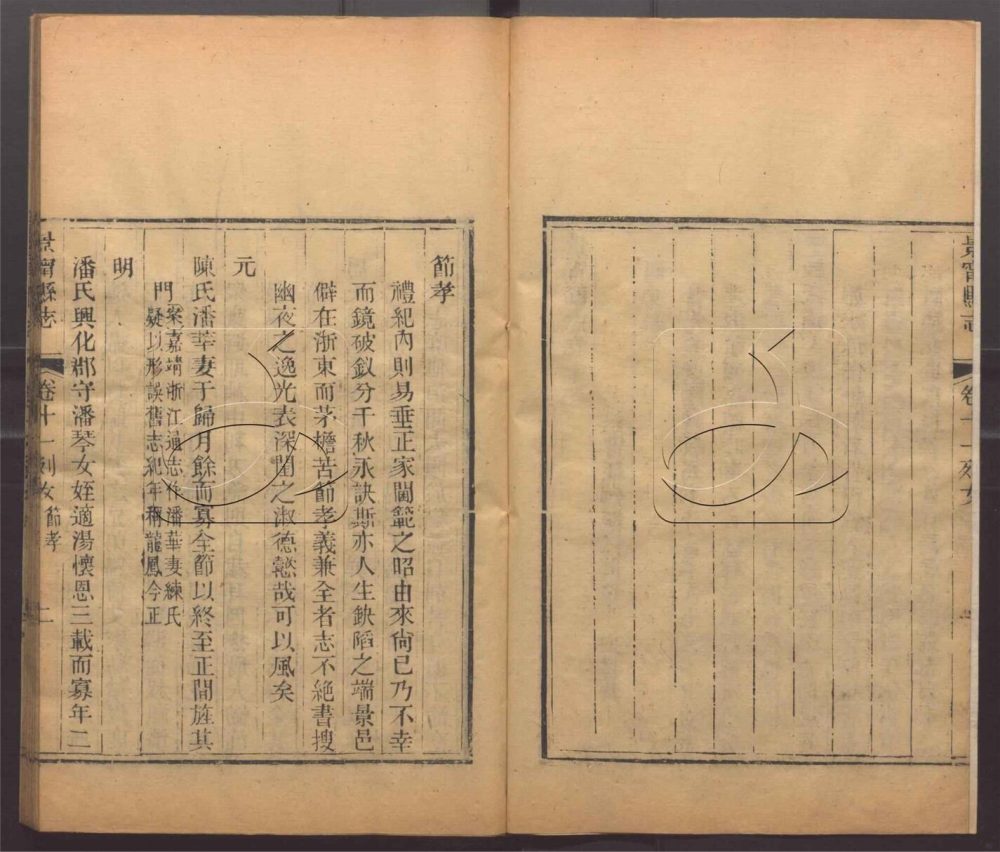 景寧縣志
卷十一列女
節孝
禮紀內則易垂正家閫範之昭由來尙已乃不幸
而鏡破釵分千秋永訣斯亦人生缺陷之端景邑
僻在浙東而茅檐苦節孝義兼全者志不絕書搜
幽夜之逸光表深閨之淑德懿哉可以風矣
元
陳氏潘華妻于歸月餘而寡全節以終至正間旌其
門案嘉靖浙江通志作潘華妻練氏
疑以形誤舊志紀年稱龍鳳今正
明
潘氏興化郡守潘琴女姪適湯懷恩三載而寡年二
景寧縣志
卷十一列女 節孝